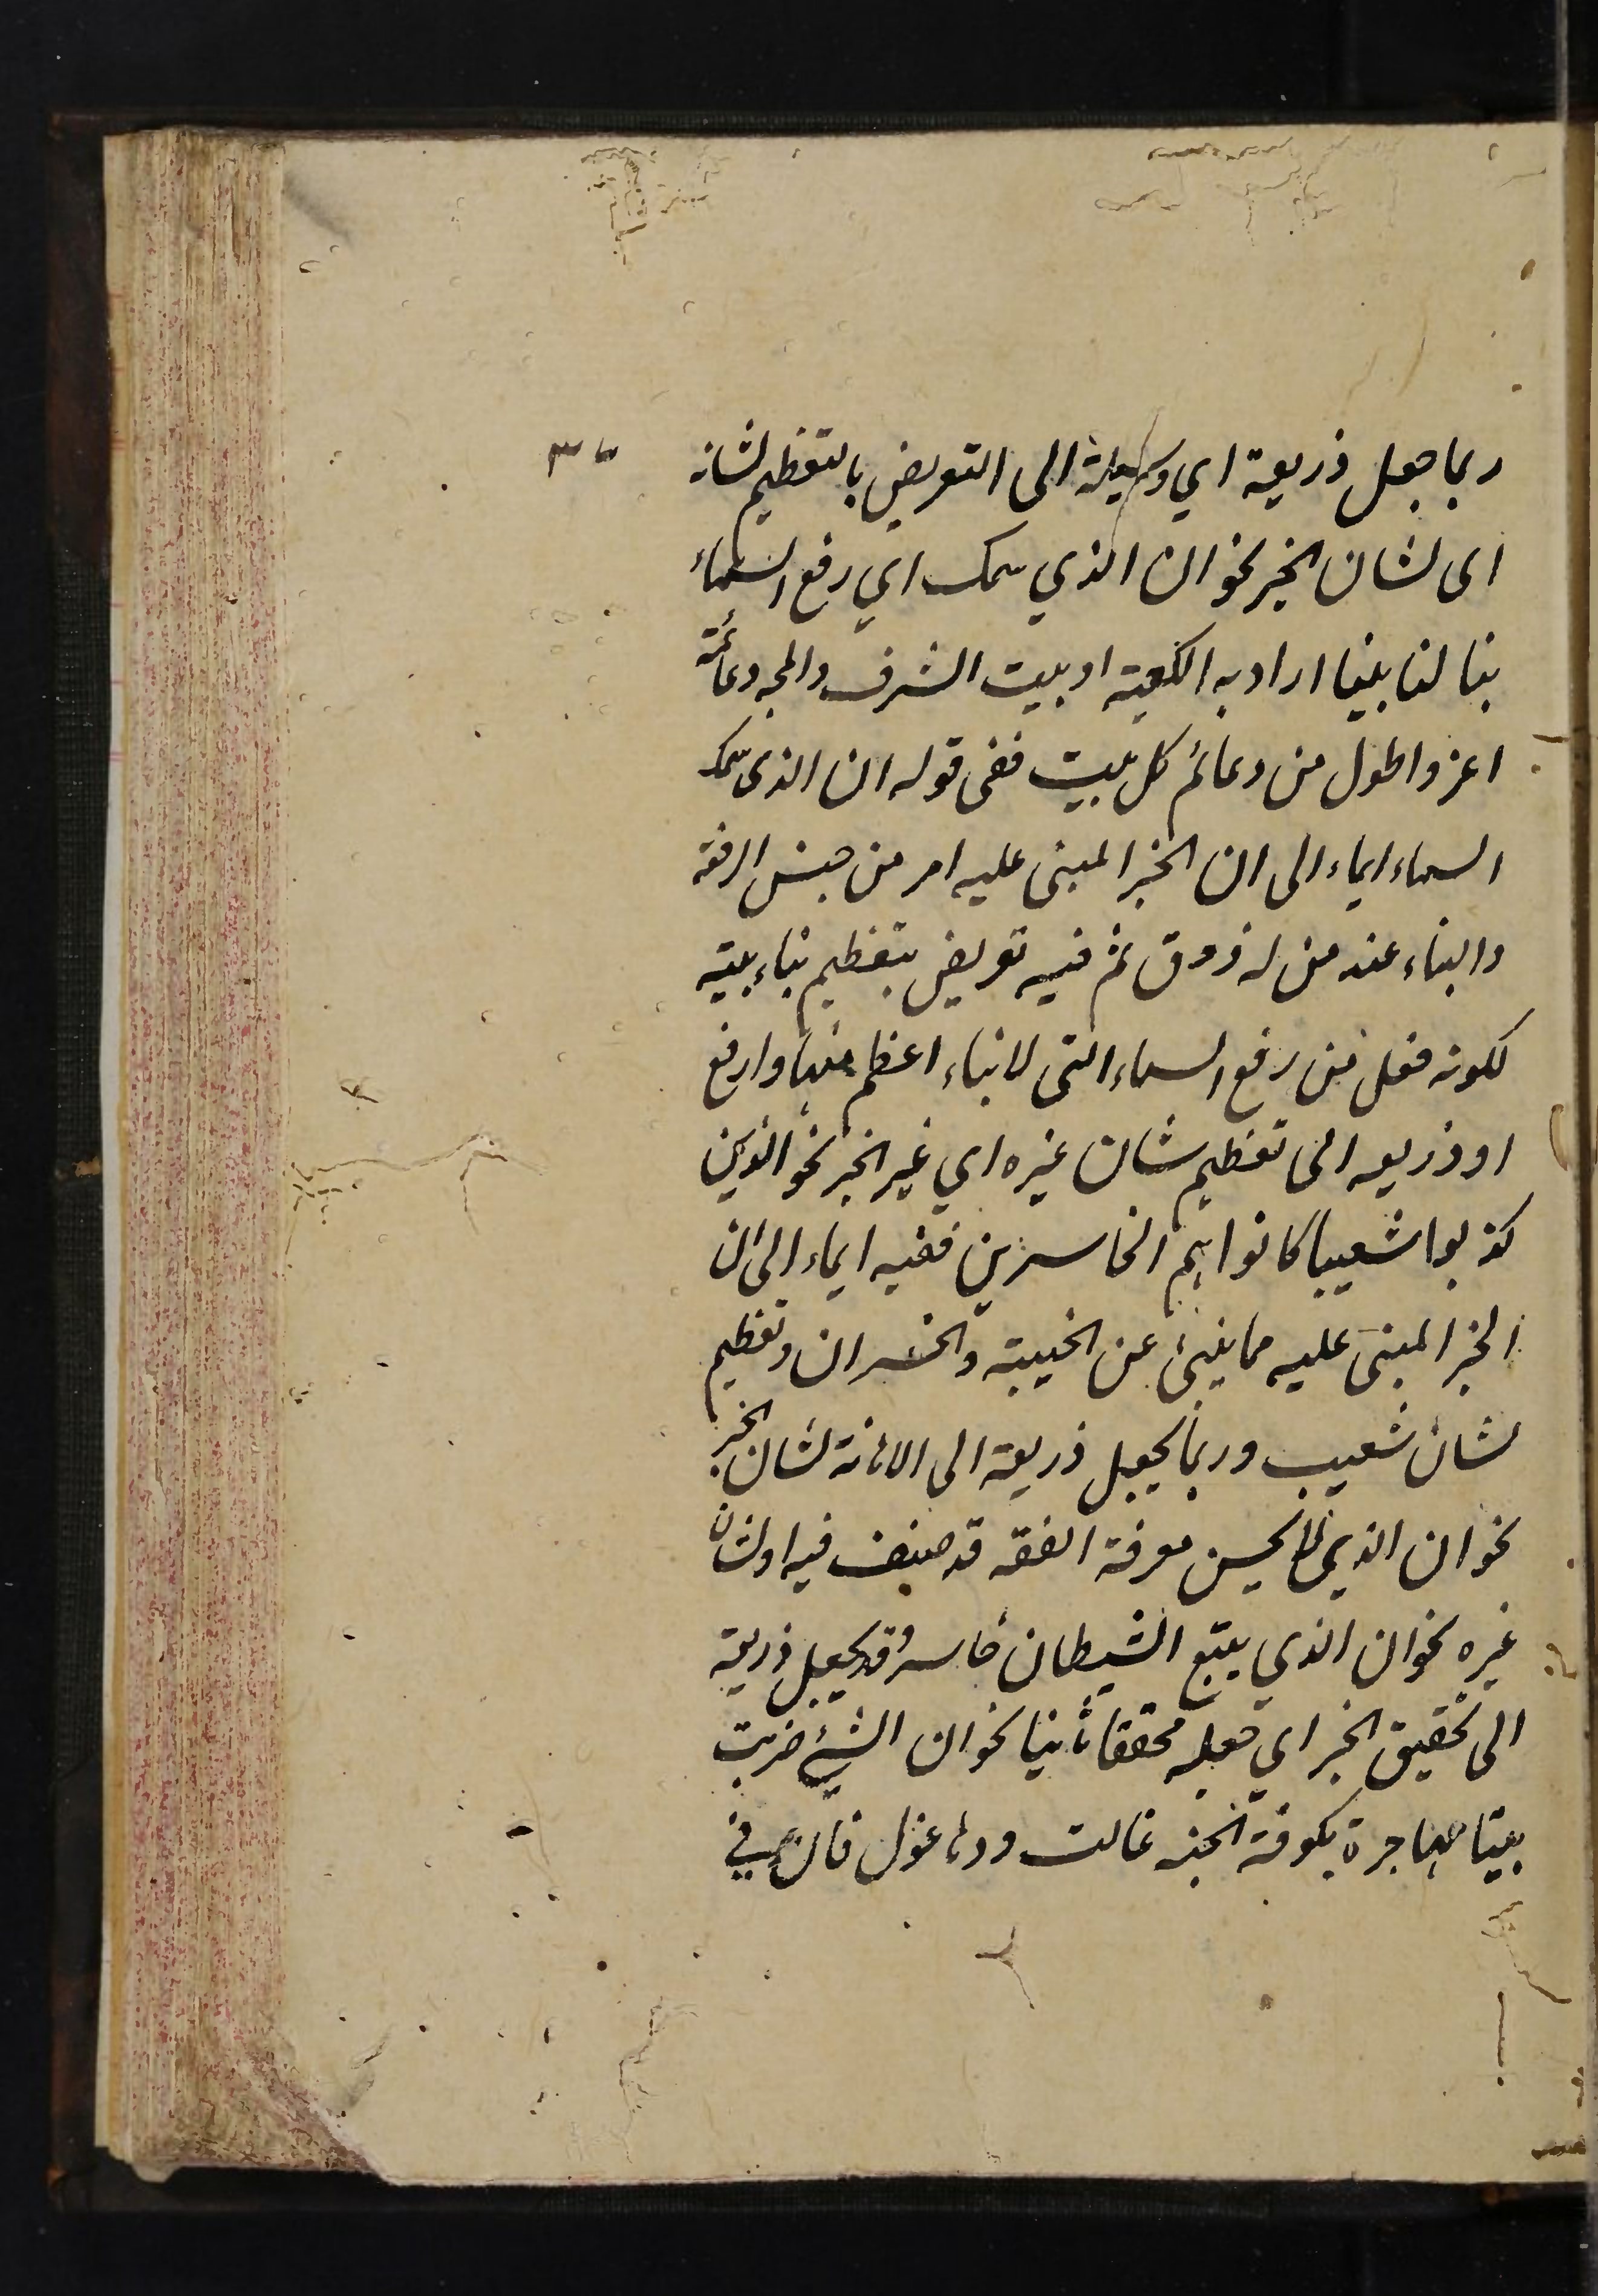 ربما جعل ذريعة اي وسيلة الى التعريض بالتعظيم لشانه
اى لشان الخبر نحو ان الذي سمك اي رفع السماء
بنا لنا بيتا اراد به الكعبة او بيت الشرف والمجد دعائمه
اعز واطول من دعائم كل بيت ففى قوله ان الذى سمك
السماء ايماء الى ان الخبر المبنى عليه امر من جنس الرفعة
والبناء عند من له ذوق ثم فيه تعريض بتعظيم بناء بيته
لكونه فعل من رفع السماء التى لا بناء اعظم منها وارفع
او ذريعه الى تعظيم شان غيره اي غير الخبر نحو الذين
كذبوا شعيبا كانوا هم الخاسرين ففيه ايماء الى ان
الخبر المبنى عليه مما ينبئ عن الخيبة والخسران وتعظيم
لشان شعيب وربما يجعل ذريعة الى الاهانة لشان الخبر
نحو ان الذي لا يحسن معرفة الفقه قد صنف فيه او لشان
غيره نحو ان الذي يتبع الشيطان خاسر وقد يجعل ذريعة
الى تحقيق الخبر اي جعله محققا ثابتا نحو ان التي ضربت
بيتا مهاجرة بكوفة الجند غالت ودها غول فان في